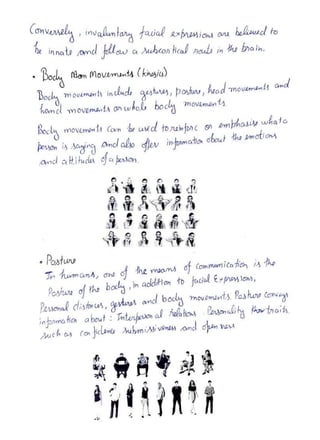 Conversely, involuntary facial expressions are believed to
be innate and follow a subcortical route in the brain.
• Body Movements (kinesics)
Body movements include gestures, posture, head movements and
hand movements or whole body movements.
Body movements can be used to reinforce or emphasise what a
person is saying and also offer information about the emotions
and attitudes of a person.
• Posture
In humans, one of the means of communication is the
Posture of the body, in addition to facial Expressions,
Personal distances, gestures and body movements. Posture Conveys
information about : Interpersonal relations. Personality traits
such as confidence submissiveness and openness